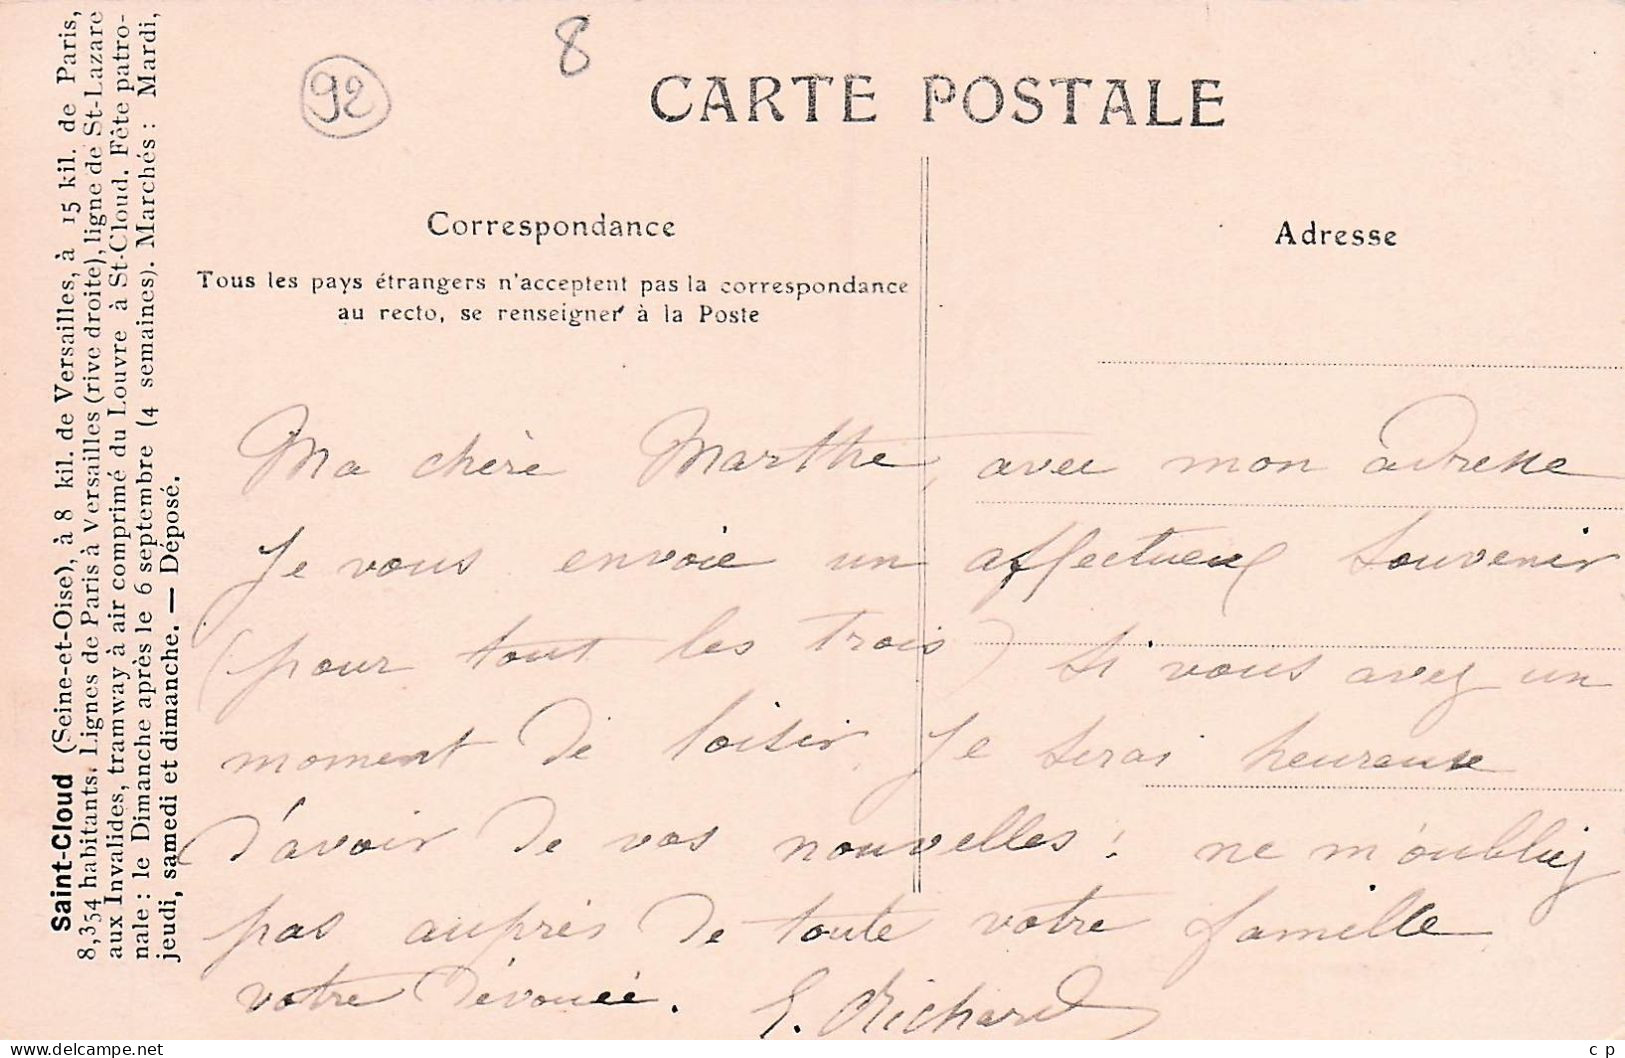 92
8
CARTE POSTALE
Correspondance
Tous les pays étrangers n'acceptent pas la correspondance
au recto, se renseigner à la Poste
Adresse
Saint-Cloud (Seine-et-Oise), à 8 kil. de Versailles, à 15 kil. de Paris,
8,354 habitants. Lignes de Paris à Versailles (rive droite), ligne de St-Lazare
aux Invalides, tramway à air comprimé du Louvre à St-Cloud. Fête patro-
nale : le Dimanche après le 6 septembre (4 semaines). Marchés : Mardi,
jeudi, samedi et dimanche. — Déposé.
Ma chère Marthe, avec mon adresse
Je vous envoie un affectueux souvenir
(pour tout les trois) si vous avez un
moment de loisir Je serai heureuse
d'avoir de vos nouvelles ! ne m'oubliez
pas auprès de toute votre famille
votre dévouée. E. Richard
c p